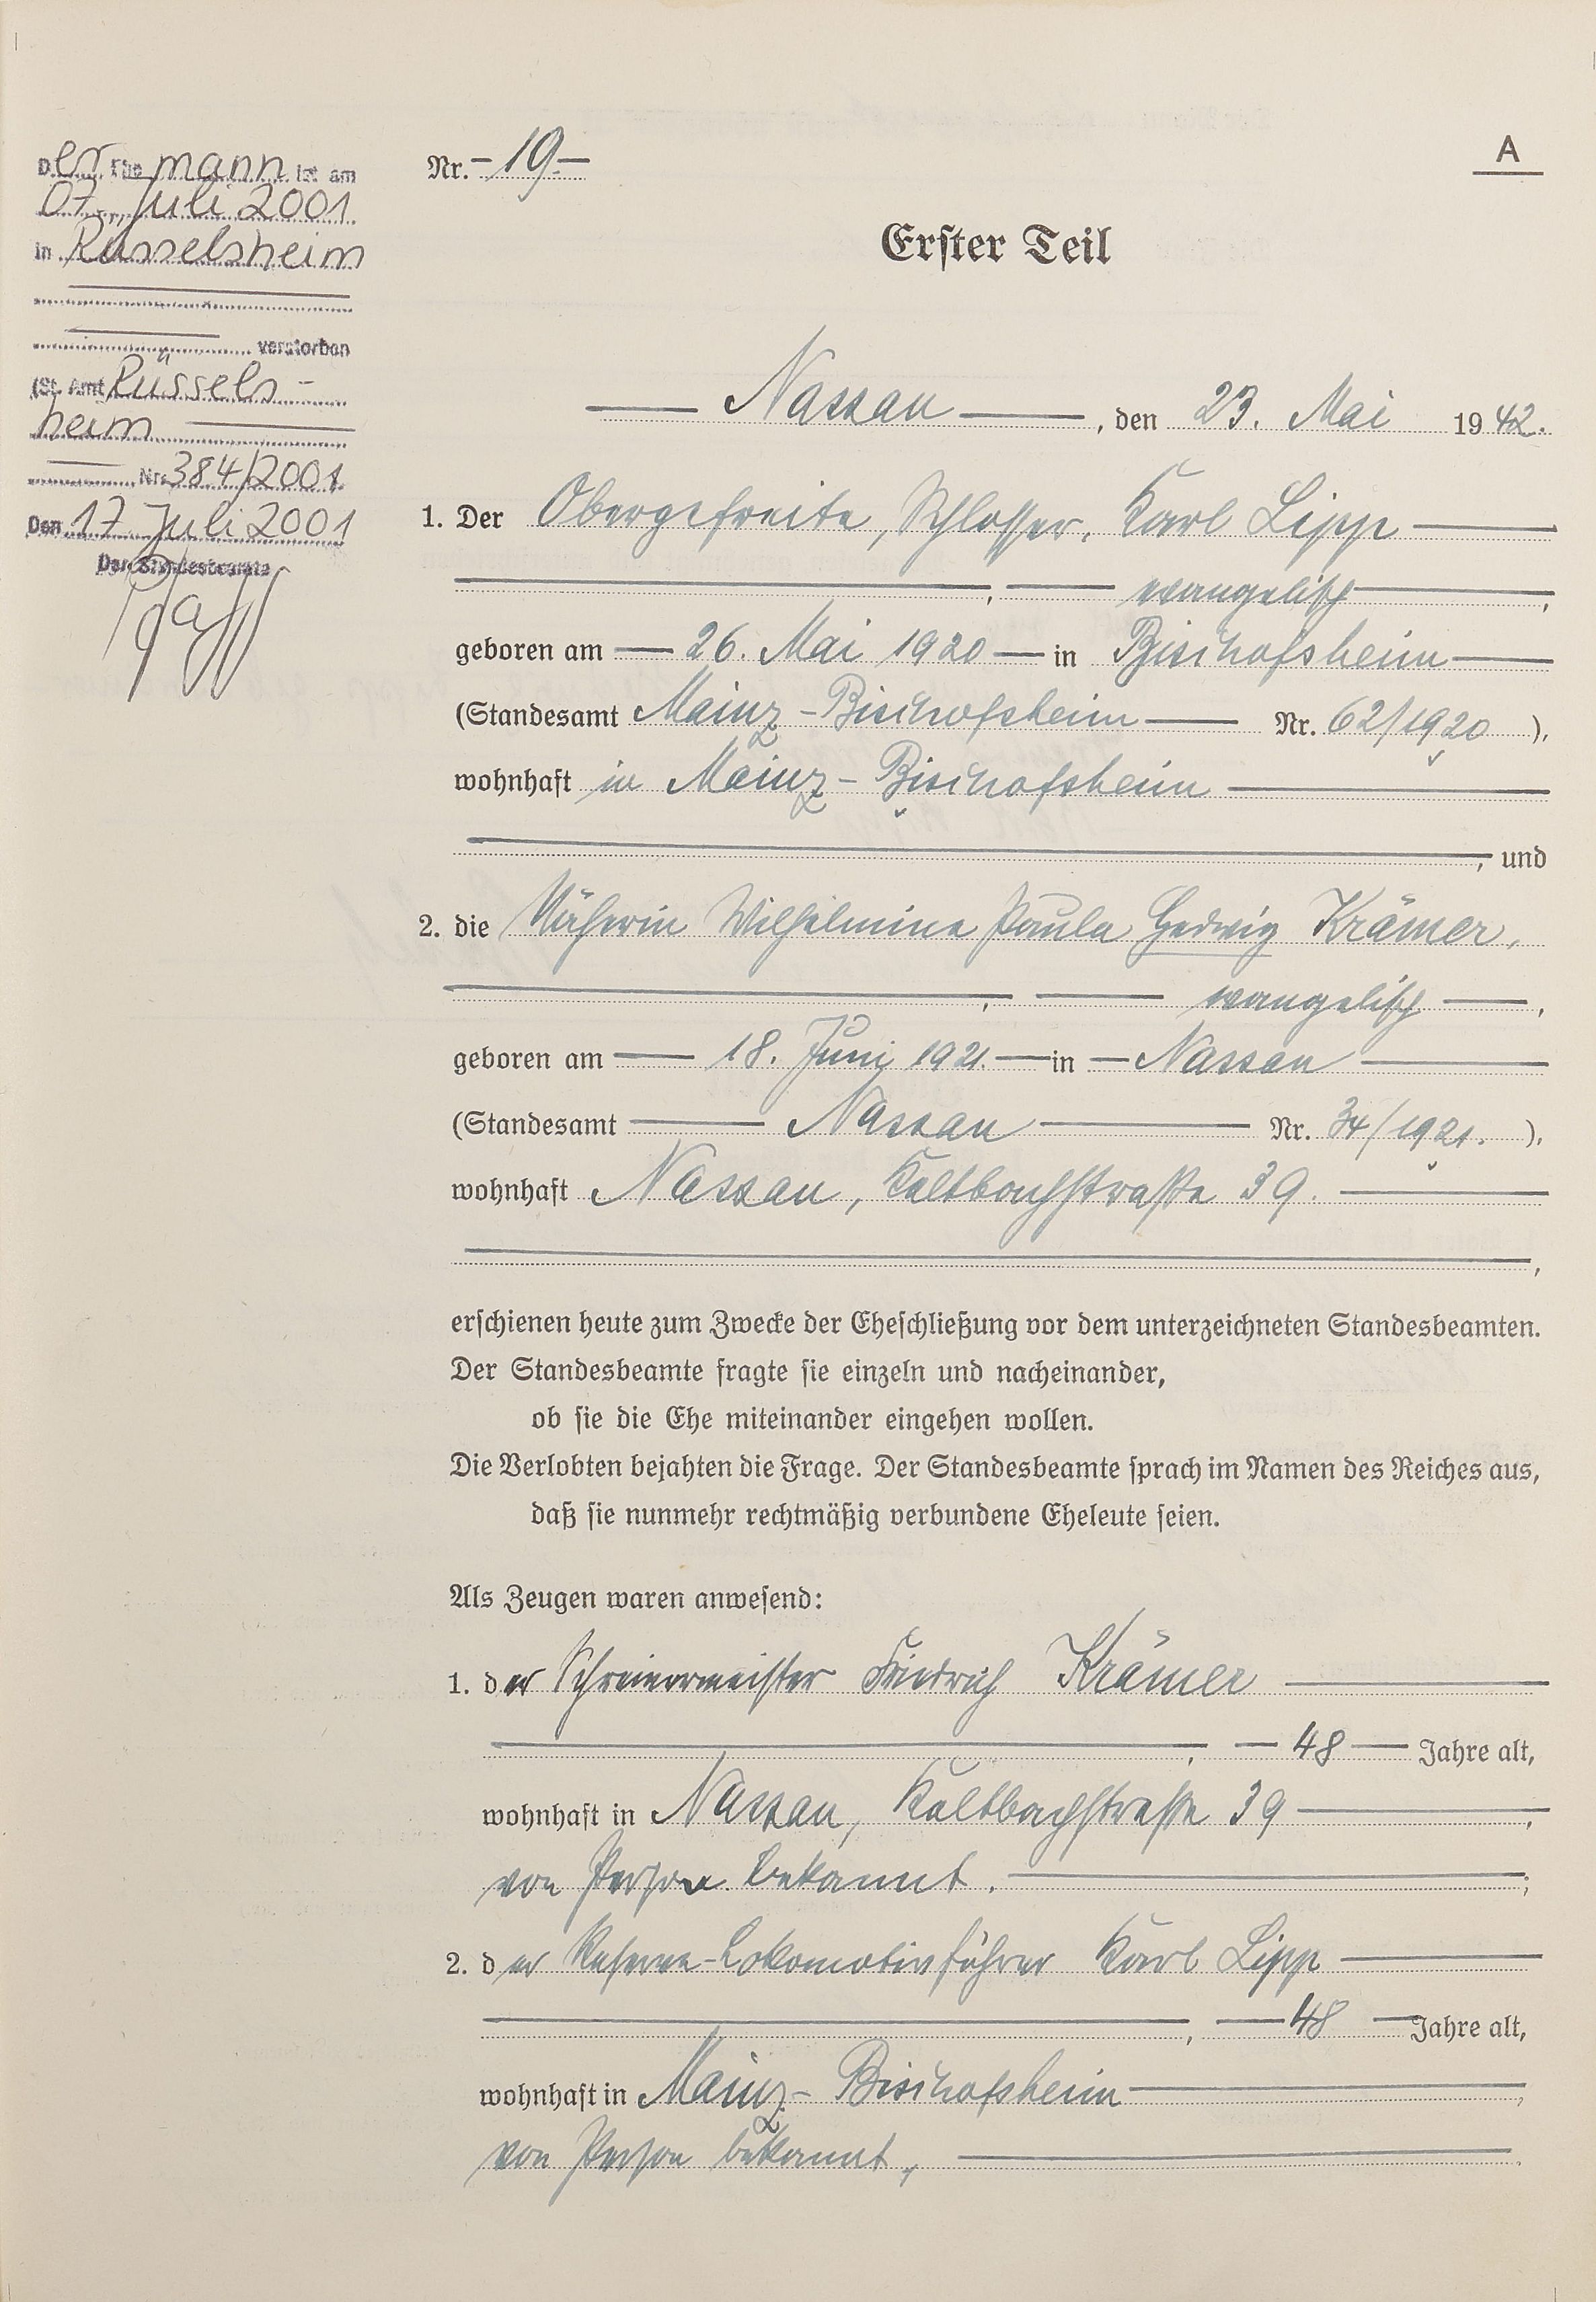 Der Ehe mann ist am
07. Juli 2001
in Rüsselsheim
verstorben
(St. Amt Rüssels-
heim
Nr. 384/2001
Den 17 Juli 2001
Der Standesbeamte
Nr. – 19 –
A
Erster Teil
Nassau, den 23. Mai 1942.
1. Der Obergefreite, Schlosser, Karl Lipp
, evangelisch,
geboren am 26. Mai 1920 in Bischofsheim
(Standesamt Mainz-Bischofsheim Nr. 62/1920),
wohnhaft in Mainz-Bischofsheim
, und
2. die Näherin Wilhelmine Paula Hedwig Krämer,
, evangelisch,
geboren am 18. Juni 1921. in Nassau
(Standesamt Nassau Nr. 34/1921.),
wohnhaft Nassau, Kaltbachstraße 39.
,
erschienen heute zum Zwecke der Eheschließung vor dem unterzeichneten Standesbeamten.
Der Standesbeamte fragte sie einzeln und nacheinander,
ob sie die Ehe miteinander eingehen wollen.
Die Verlobten bejahten die Frage. Der Standesbeamte sprach im Namen des Reiches aus,
daß sie nunmehr rechtmäßig verbundene Eheleute seien.
Als Zeugen waren anwesend:
1. der Schreinermeister Friedrich Krämer
, 48 Jahre alt,
wohnhaft in Nassau, Kaltbachstraße 39,
von Person bekannt.;
2. der Reserve-Lokomotivführer Karl Lipp
, 48 Jahre alt,
wohnhaft in Mainz-Bischofsheim,
von Person bekannt,.